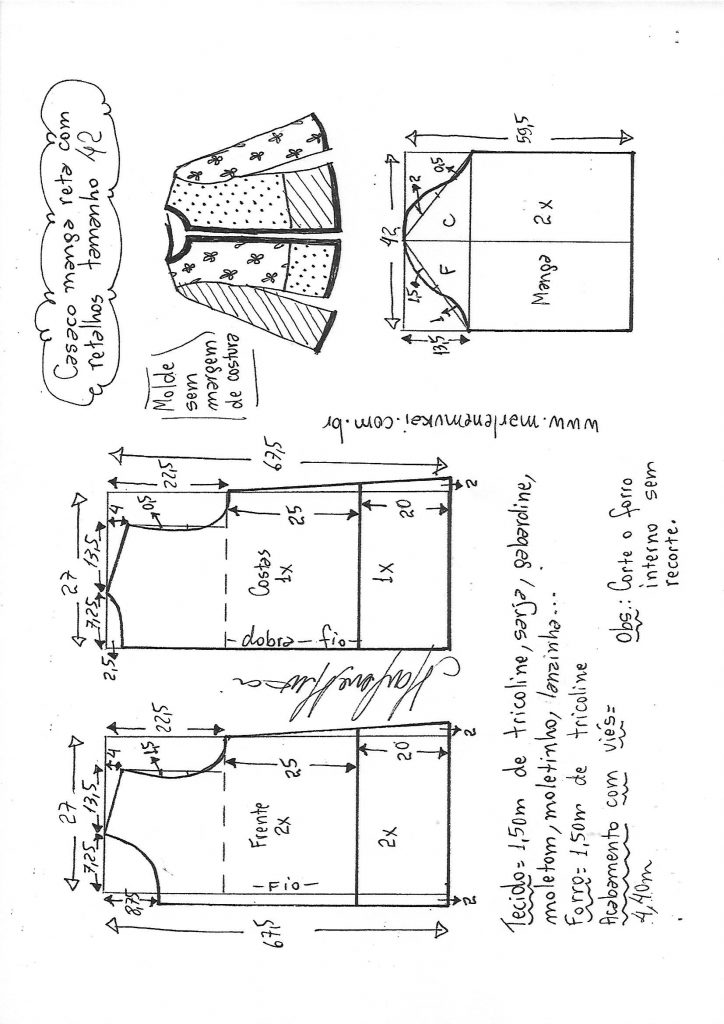 Casaco manga reta com
retalhos tamanho 42
Molde
sem
margem
de costura
42
59,5
13,5
1
1,5
2
0,5
F
C
Manga
2x
www.marlenemukai.com.br
27
7,25
13,5
4
22,5
67,5
2,5
0,5
25
20
2
Costas
1x
1x
dobra
fio
27
7,25
13,5
4
22,5
67,5
8,75
1,5
25
20
2
2
Frente
2x
2x
Fio
Tecido= 1,50m de tricoline, sarja, gabardine,
moletom, moletinho, lanzinha...
Forro= 1,50m de tricoline
Acabamento com viés=
4,40m
Obs.: Corte o forro
interno sem
recorte.